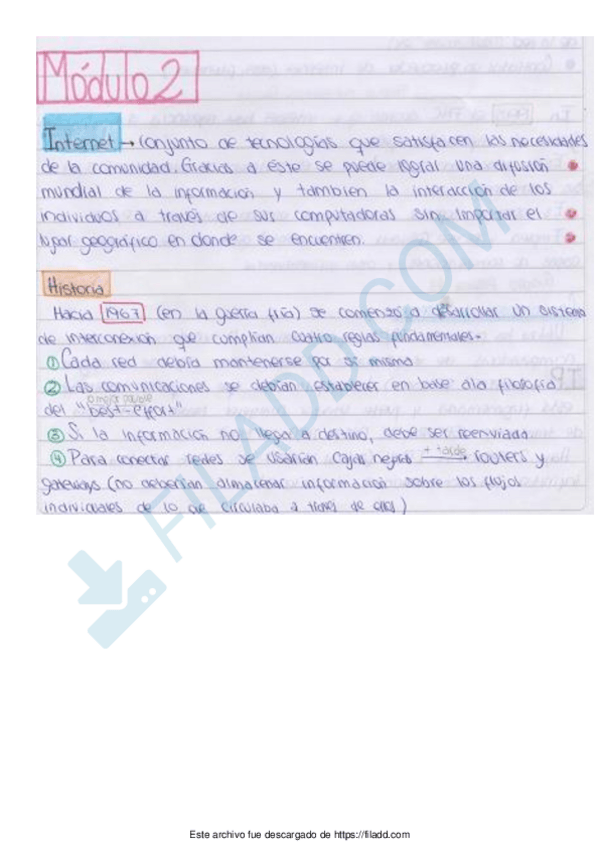 Módulo 2
Internet → Conjunto de tecnologías que satisfacen las necesidades
de la comunidad. Gracias a éste se puede lograr una difusión
mundial de la información y tambien la interacción de los
individuos a través de sus computadoras sin importar el
lugar geográfico en donde se encuentren.
Historia
Hacia 1967 (en la guerra fría) se comenzó a desarrollar un sistema
de interconexión que cumplían cuatro reglas fundamentales.
① Cada red debía mantenerse por sí misma
② Las comunicaciones se debían establecer en base a la filosofía
lo mejor posible
del "best-effort"
③ Si la información no llega a destino, debe ser reenviada
④ Para conectar redes se usarían cajas negras + tarde → routers y
gateways (no deberían almacenar información sobre los flujos
individuales de lo que circulaba a través de ellos)
FILADD.COM
Este archivo fue descargado de https://filadd.com